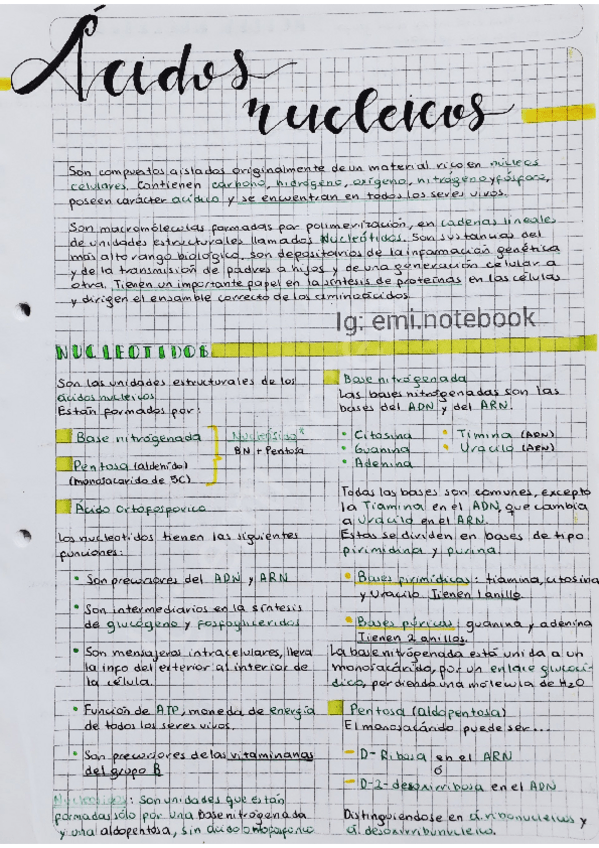 Ácidos
nucleicos
Son compuestos aislados originalmente de un material rico en núcleos
celulares. Contienen carbono, hidrógeno, oxígeno, nitrógeno y fósforo,
poseen carácter acídico y se encuentran en todos los seres vivos.
Son macromóleculas formadas por polimerización, en cadenas lineales
de unidades estructurales llamados Nucleótidos. Son sustancias del
más alto rango biológico, son depositarios de la información genética
y de la transmisión de padres a hijos y de una generación celular a
otra. Tienen un importante papel en la síntesis de proteínas en las células
y dirigen el ensamble correcto de los aminoácidos
Ig: emi.notebook
NUCLEOTIDOS
Son las unidades estructurales de los
ácidos nucleicos
Están formados por:
Base nitrogenada
Pentosa (aldehído)
(monosacarido de 5C)
BN + Pentosa
Ácido Ortofosforico
Los nucleotidos tienen las siguientes
funciones:
• Son precursores del ADN y ARN
• Son intermediarios en la síntesis
de glucógeno y fosfoglicéridos
• Son mensajeros intracelulares, lleva
la info del exterior al interior de
la célula.
• Función de ATP, moneda de energía
de todos los seres vivos.
• Son precursores de las vitaminanas
del grupo B
: Son unidades que están
formadas sólo por una Base nitrogenada
y una aldopentosa, sin ácido ortofosforico
Base nitrogenada
Las bases nitrogenadas son las
bases del ADN y del ARN.
• Citosina • Timina (ADN)
• Guanina • Uracilo (ARN)
• Adenina
Todas las bases son comunes, excepto
la Tiamina en el ADN, que cambia
a Uracilo en el ARN.
Estas se dividen en bases de tipo
pirimidina y purina.
• Bases pirimídicas: tiamina, citosina
y Uracilo. Tienen 1 anillo
• Bases púricas: guanina y adenina
Tienen 2 anillos.
La base nitrogenada está unida a un
monosacárido, por un enlace glucosí-
dico, perdiendo una mólecula de H2O
Pentosa (aldopentosa)
El monosacárido puede ser...
– D-Ribosa en el ARN
ó
– D-2-desoxirribosa en el ADN
Distinguiendose en á. ribonucleicos y
á. desoxirribunucleico.